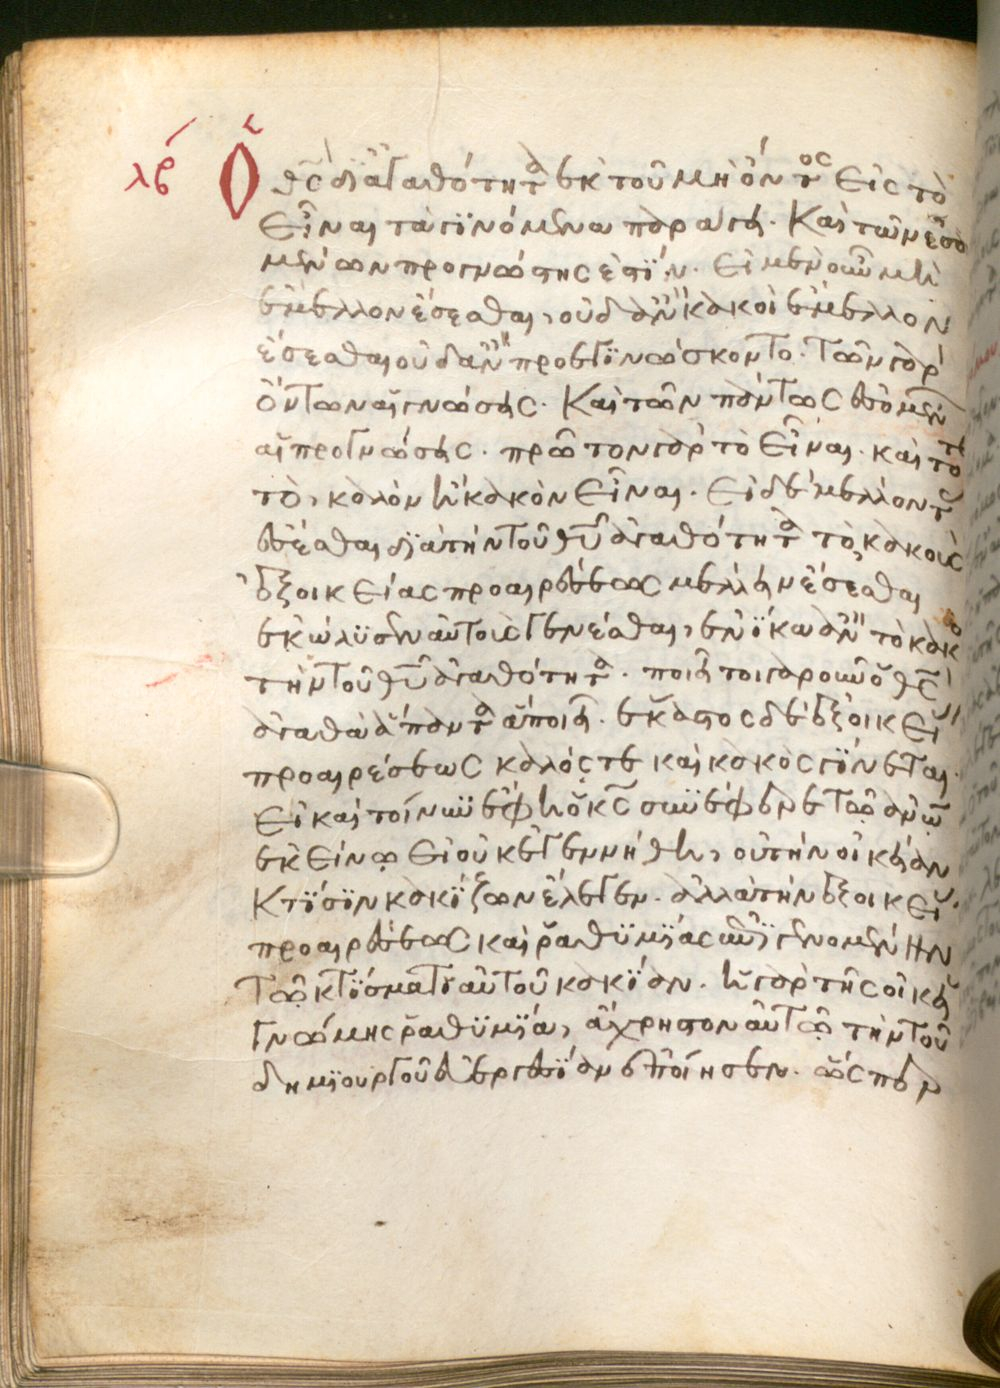 λβ Ὁ θς̅ δι ἀγαθότητα ἐκ τοῦ μὴ ὄντος εἰς τὸ
εἶναι τὰ γινόμενα παράγει. Καὶ τῶν ἐσο
μένων προγνώστης ἐστίν. εἰ μὲν οὖν μὴ
ἔμελλον ἔσεσθαι, οὐδ ἂν κακοὶ ἔμελλον
ἔσεσθαι οὐδ ἂν προεγινώσκοντο. Τῶν γὰρ
ὄντων αἱ γνώσεις. Καὶ τῶν πάντως ἐσομένων
αἱ προγνώσεις. πρῶτον γὰρ τὸ εἶναι. καὶ τότε
τὸ, καλὸν ἢ κακὸν εἶναι. Εἰ δὲ μέλλοντας
ἔσεσθαι διὰ τὴν τοῦ θυ̅ ἀγαθότητα τὸ, κακοὺς
ἐξ οἰκείας προαιρέσεως μέλλειν ἔσεσθαι
ἐκώλυσεν αὐτοὺς γενέσθαι, ἐνίκα ἂν τὸ κακὸν
τὴν τοῦ θυ̅ ἀγαθότητα. ποιεῖ τοιγαροῦν ὁ θς̅
ἀγαθὰ ἅπαντα ἃ ποιεῖ. ἕκαστος δὲ ἐξ οἰκείας
προαιρέσεως καλός τε καὶ κακὸς γίνεται.
Εἰ καὶ τοίνυν ἔφη ὁ κς̅ συνέφερεν τῷ ἀνω̅
ἐκείνῳ εἰ οὐκ ἐγεννήθη, οὐ τὴν οἰκείαν
κτίσιν κακίζων ἔλεγεν. ἀλλὰ τὴν ἐξ οἰκείας
προαιρέσεως καὶ ῥαθυμίας ἐπιγενομένην
τῷ κτίσματι αὐτοῦ κακίαν. ἡ γὰρ τῆς οἰκείας
γνώμης ῥαθυμία, ἄχρηστον αὐτῷ τὴν τοῦ
δημιουργοῦ εὐεργεσίαν ἐποίησεν. ὥσπερ